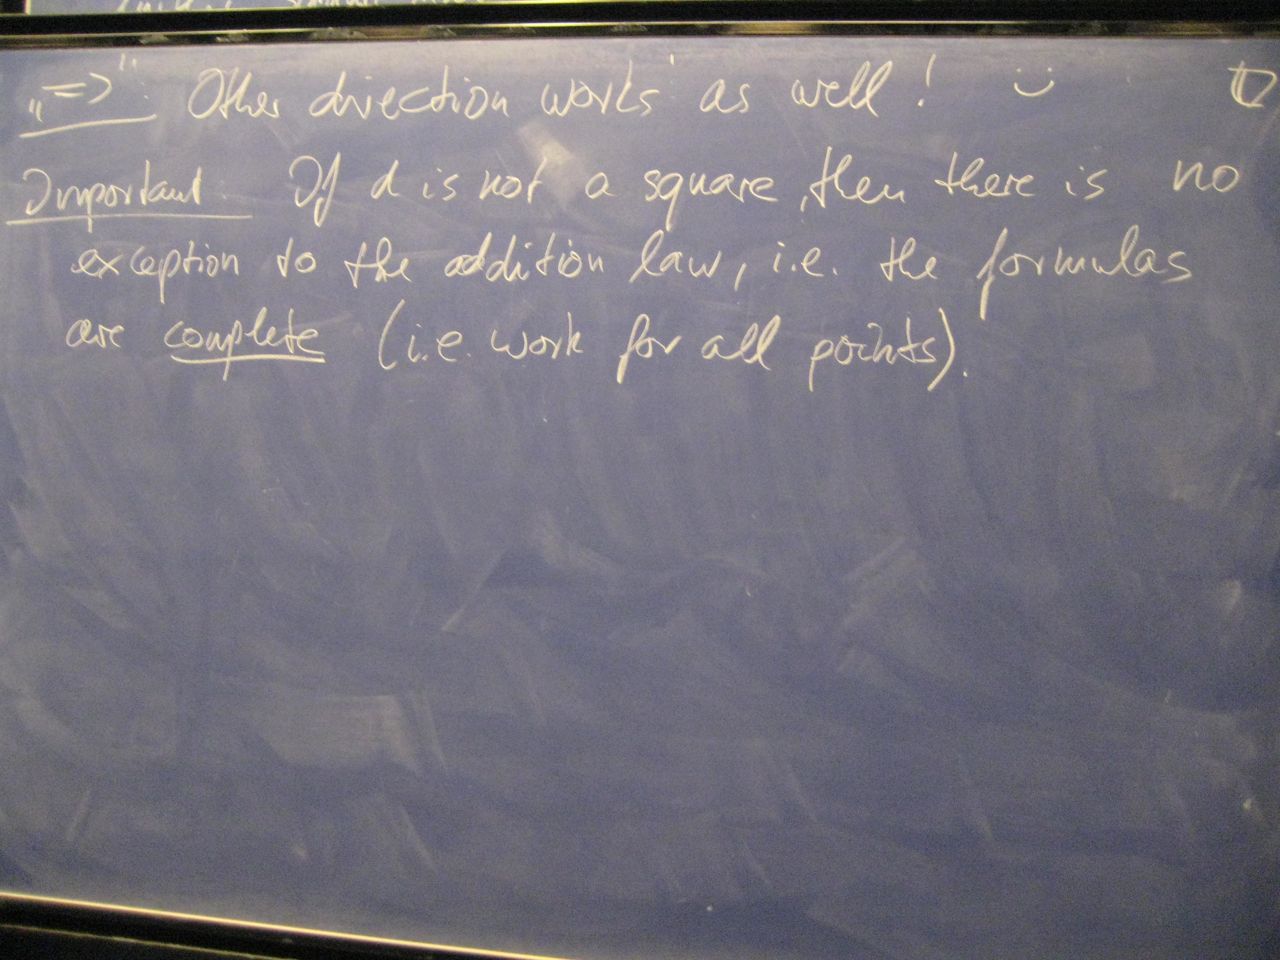 „=>": Other direction works as well! ☺ □
Important: If d is not a square, then there is no
exception to the addition law, i.e. the formulas
are complete (i.e. work for all points).